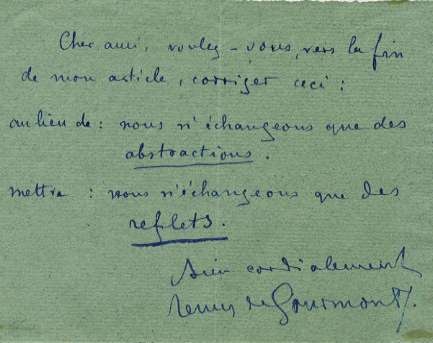 Cher ami, voulez-vous, vers la fin
de mon article, corriger ceci :
au lieu de : nous n'échangeons que des
abstractions.
mettre : nous n'échangeons que des
reflets.
Bien cordialement
Remy de Gourmont